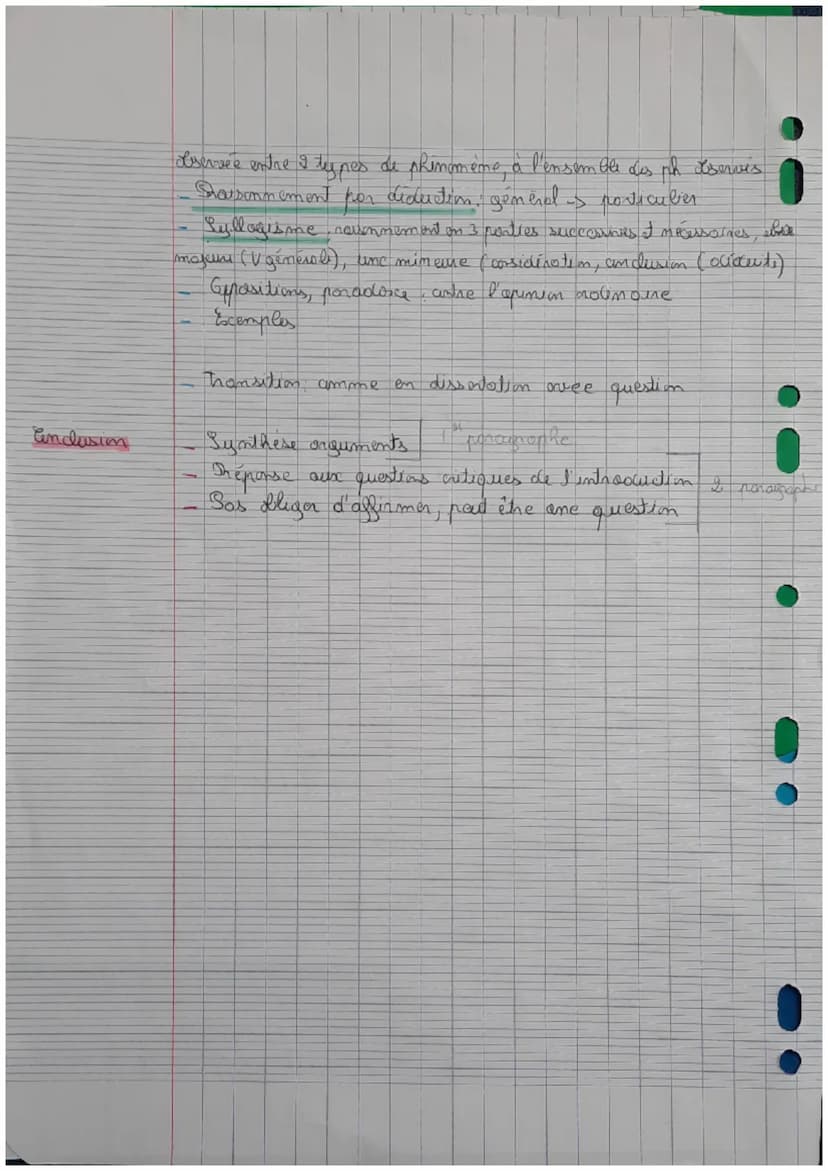 observée entre 2 types de phénomène, à l'ensemble des ph observés
- Raisonnement par déduction : général -> particulier
- Syllogisme : raisonnement en 3 parties successives et nécessaires,
majeure (V générale), une mineure (considération, conclusion
- Oppositions, paradoxe : contre l'opinion
- Exemples
- Transition : comme en dissertation avec question
Conclusion
- Synthèse arguments 1er paragraphe
- Réponse aux questions critiques de l'introduction 2 paragraphe
- Pas obliger d'affirmer, peut être une question